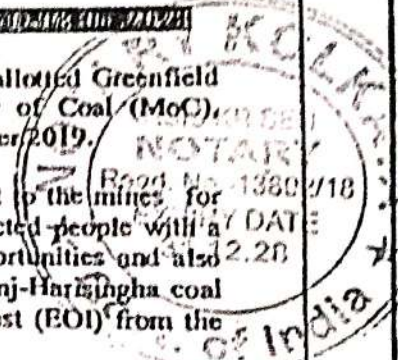 allotted Greenfield
of Coal (MoC),
er 2019.
to the mines for
cted people with a
ortunities and also
nj-Harisingha coal
st (EOI) from the
KOLKA
NOTARY
Regd. No. 13802/18
DATE
12.20
of India